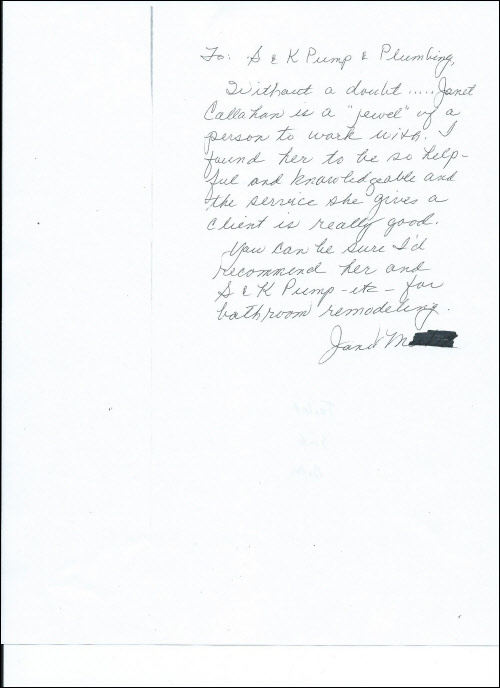 To: S & K Pump & Plumbing,
Without a doubt.....Janet
Callahan is a "jewel" of a
person to work with. I
found her to be so help-
ful and knowledgeable and
the service she gives a
client is really good.
You can be sure I'd
recommend her and
S & K Pump - etc - for
bathroom remodeling.
Janet M